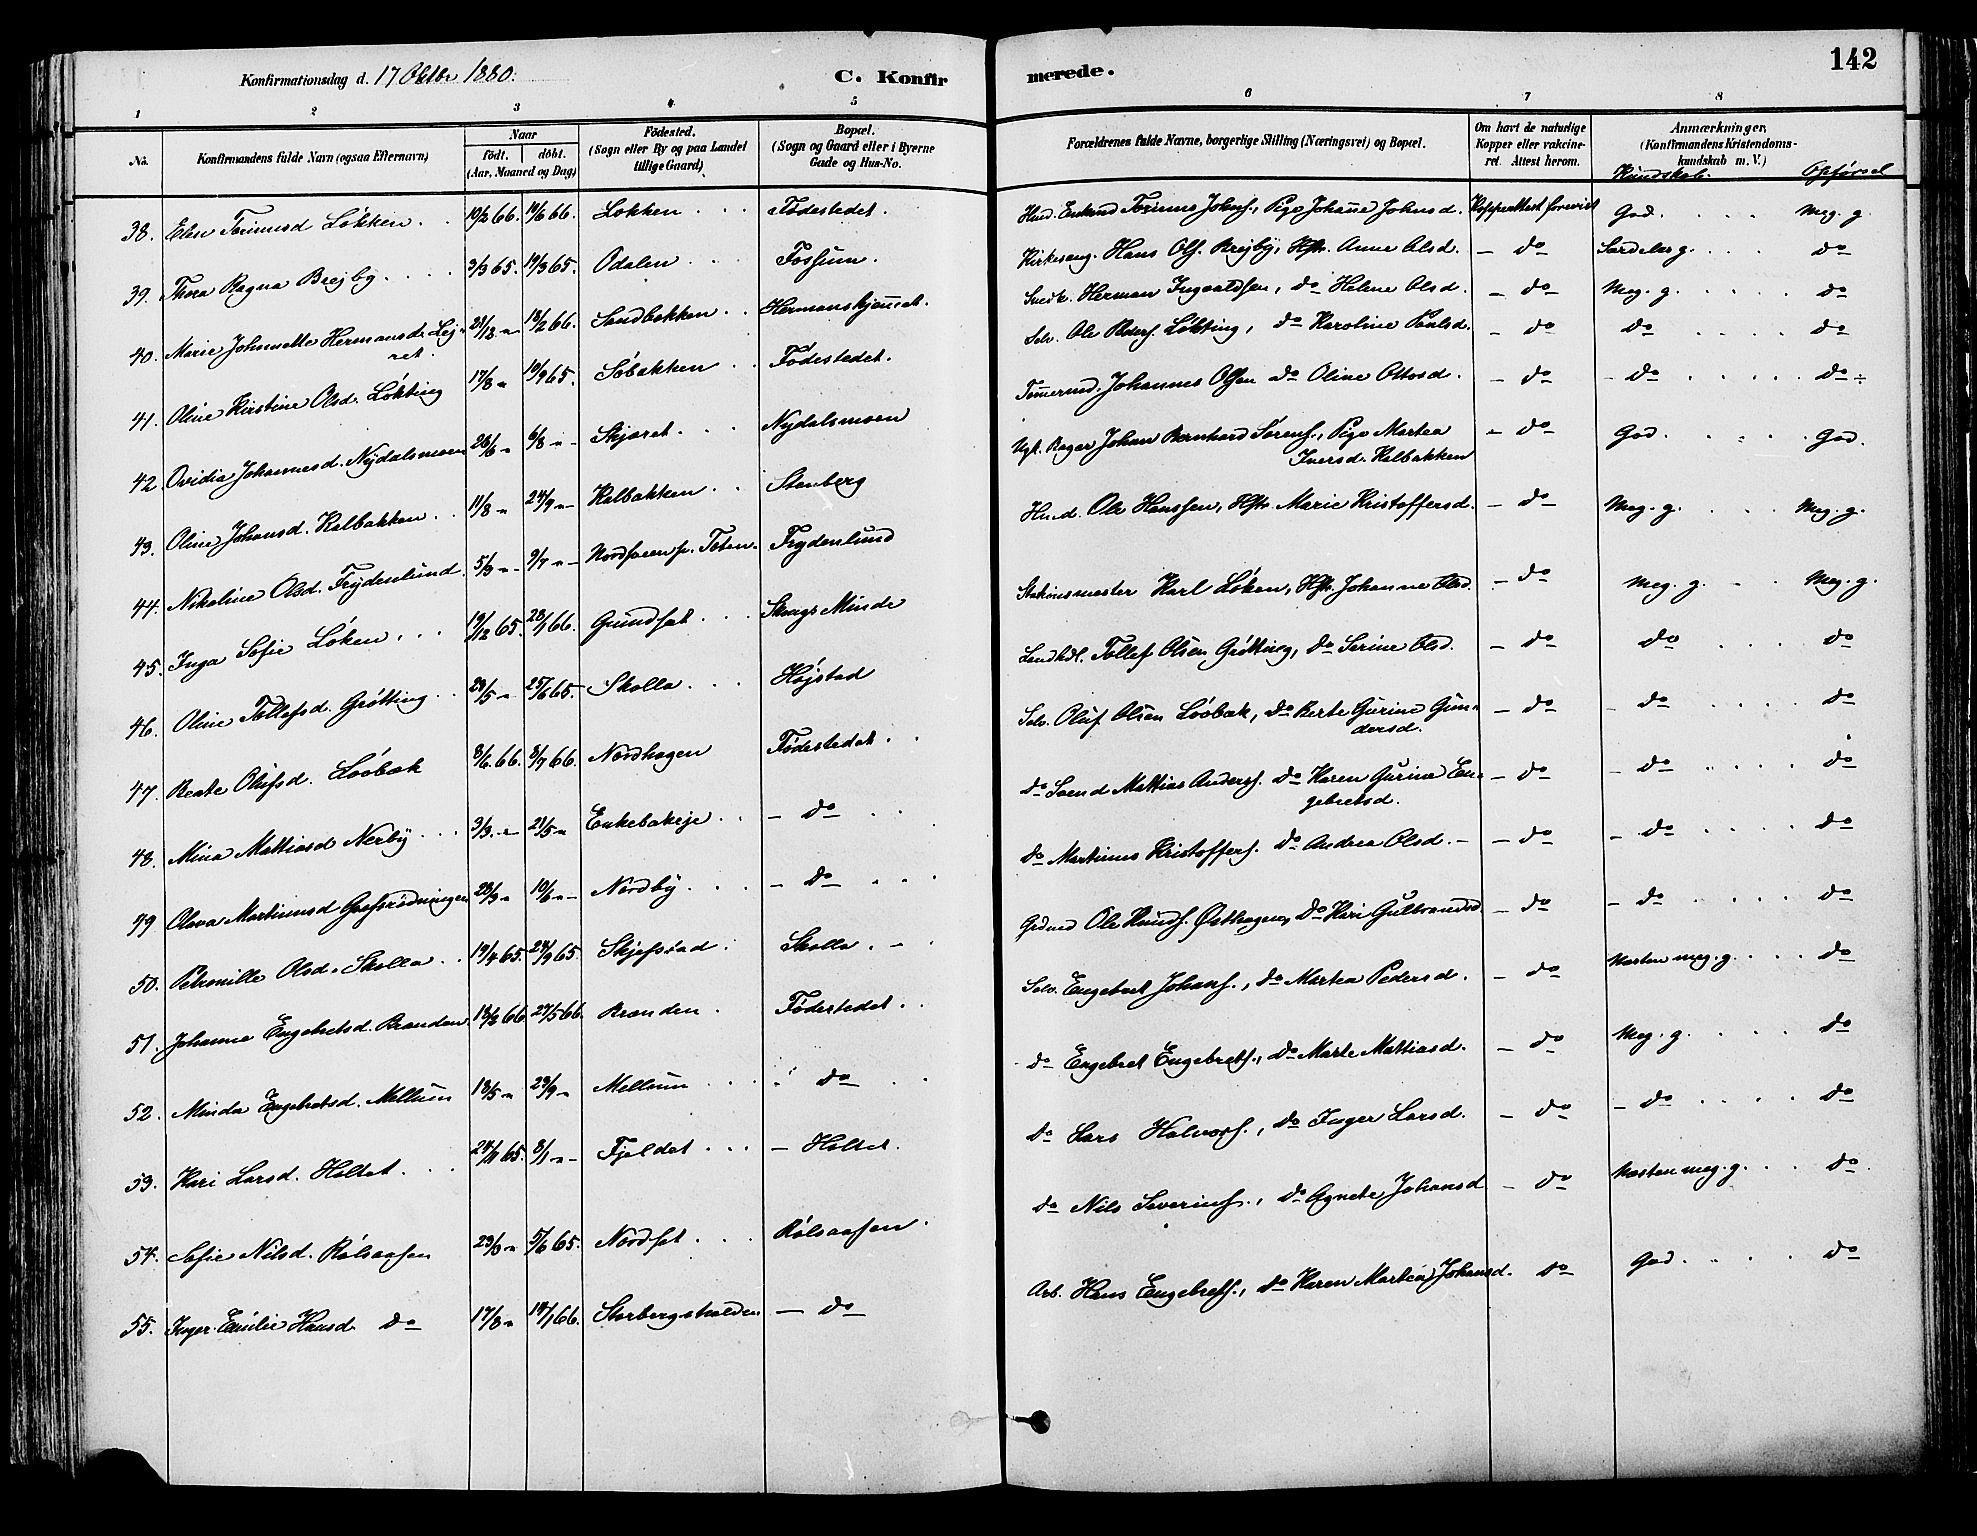 Konfirmationsdag d. 17 Oktbr 1880.
C. Konfir
merede.
142
1 2 3 4 5 6 7 8
No. Konfirmandens fulde Navn (ogsaa Efternavn) Naar født. døbt. (Aar, Maaned og Dag) Fødested. (Sogn eller By og paa Landet tillige Gaard) Bopæl. (Sogn og Gaard eller i Byerne Gade og Hus-No.
Forældrenes fulde Navne, borgerlige Stilling (Næringsvei) og Bopæl. Om havt de naturlige Kopper eller vakcineret. Attest herom. Anmærkninger. (Konfirmandens Kristendomskundskab m. V.) Kundskab. Opførsel
38. Løkken . . . 66. 66. Løkken . . . Fødestedet. Johanne Johnsd. Koppeattest forevist God. . . . Meg. g.
39. Thora Ragna Brejby . . . 3/3 65. 19/3 65. Odalen . . . Fossum. Kirkesang. Hans Ols. Brejby, Hstr. Anne Olsd. — do Særdeles g. . . . do
40. Marie Hermansd. Lejret. 18/2 66. Sandbakken . . Hermanskjønset. Herman Ingvaldsen, do Helene Olsd. — do Meg. g. . . . do
41. Oline Kirstine Olsd. Løkting 17/8 " 10/9 65. Søbakken . . Fødestedet. Selv. Ole Løkting, do Karoline Paulsd. — do do . . . do
42. Ovidia Johannesd. Nydalsmoen 6/8 " - Skjæret . . . Nydalsmoen Johannes Olsen do Oline Ottosd. — do — do . . . do ÷
43. Oline Johansd. Kalbakken . . 11/8 " 24/9 " - Kalbakken . . Stenberg Ugt. Bager Johan Bernhard Sørens., Pige Martea Iversd. Kalbakken — do God. . . . God.
44. Nikoline Olsd. Frydenlund. 5/3 " - 9/7 " - Toten. Frydenlund Husmd. Ole Hanssen, Hstr. Marie Kristoffersd. — do Meg. g. . . . Meg. g.
45. Inga Sofie Løken . . . 19/12 65. 28/1 66. Grundset . . . Skaugs Minde Stationsmester Karl Løken, Hstr. Johanne Olsd. — do Meg. g. . . Meg. g.
46. Oline Tollefsd. Grøtting . . 29/5 " 25/6 65. Skolla . . . Højstad Landhdl. Tollef Olsen Grøtting, do Serine Olsd. — do do . . . do
47. Beate Olufsd. Løobæk 8/6. 66. 8/7 66. Nordhagen Fødestedet . . Selv. Oluf Olsen Løobæk, do Berte Gurine Gundersd. — do — do . . . do
48. Mina Mattiasd Nerby . . . 3/3. " - 21/5 " Enkebakeje . . — do . . do Svend Mattias Anders. do Karen Gurine Engebretsd. — do — do . . . do
49 Olava Martinusd 28/3 " 10/6 " - Nordby . . . — do . . . do Martinus Kristoffers. do Andrea Olsd. — — do — do . . . do
50. Petronille Olsd. Skolla . . 19/4 65. 24/9 65. Skjefstad . Skolla . . . Ole Knuds. Østhagen, do Kari Gulbrandsd. — do — do . . . do
51. Johanne Engebretsd. Brænden. 18/2 66. 27/5 66. Brænden . Fødestedet . . Selv. Engebret Johans., do Martea Pedersd. — do Næsten meg. g. . . . do
52. Minda Engebretsd. Mellum 18/5 " 23/9 " Mellum . . . do . . do Engebret Engebrets., do Marte Mattiasd. — do Meg. g. . . . do
53. Kari Larsd. Holtet . . . 65. 8/1 " - Fjeldet . . . — Holtet. do Lars Halvors., do Inger Larsd. — do — do . . . do
54. Sofie Nilsd. Rølsaasen 23/3 " 5/6 65. Nordset . . . Rølsaasen . do Nils Severins., do Agnete Johansd — do Næsten meg. g. . . . do
55. Inger Emilie Hansd do 17/8 " 14/1 66. Storbergshalden — do Arb. Hans Engebrets., do Karen Martea Johansd. do God . . . do